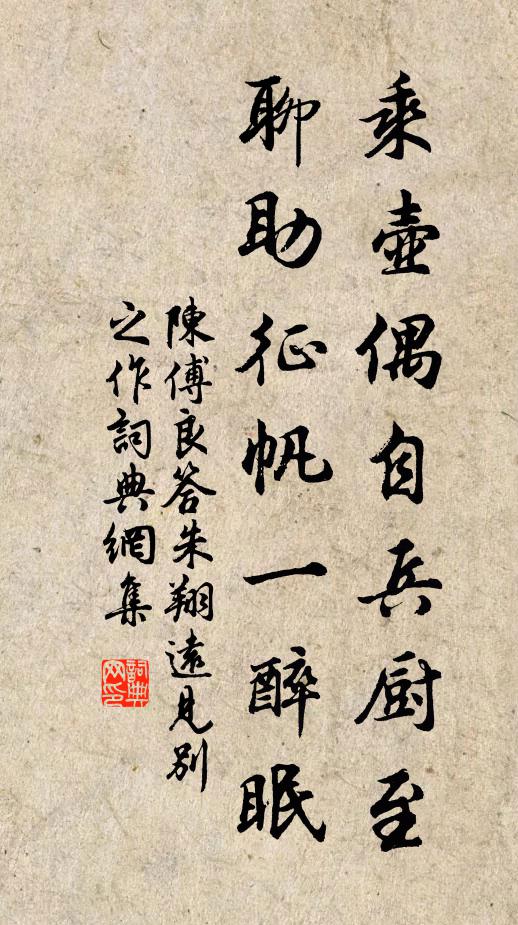 乘壺偶自兵厨至
聊助征帆一醉眠
陳傅良答朱翔遠見别
之作詞典網集
詞典網印